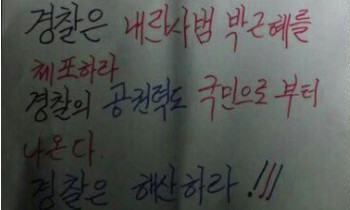 경찰은 내란사범 박근혜를
체포하라
경찰의 공권력도 국민으로 부터
나온다.
경찰은 해산하라.!!!